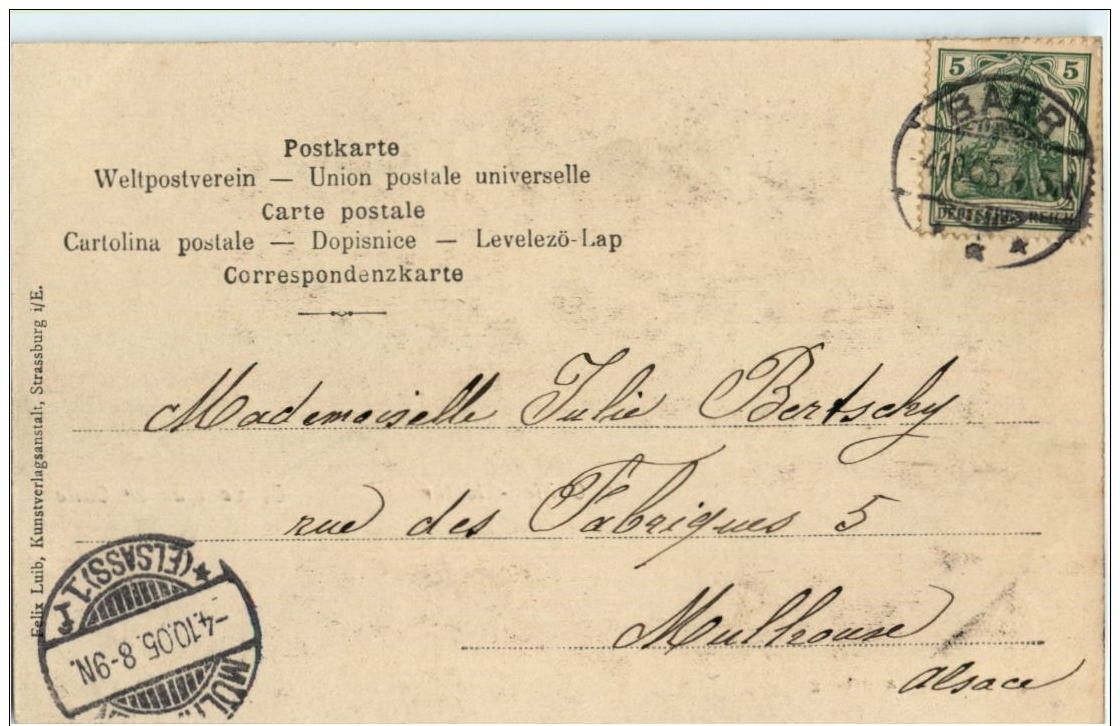 Postkarte
Weltpostverein — Union postale universelle
Carte postale
Cartolina postale — Dopisnice — Levelező-Lap
Correspondenzkarte
5 5
DEUTSCHES REICH
BARR
4.10.05
Mademoiselle Julie Bertschy
rue des Fabriques 5
Mulhouse
Alsace
Felix Luib, Kunstverlagsanstalt, Strassburg i/E.
(ELSASS) 1
-4.10.05. 8-9N.
MÜL